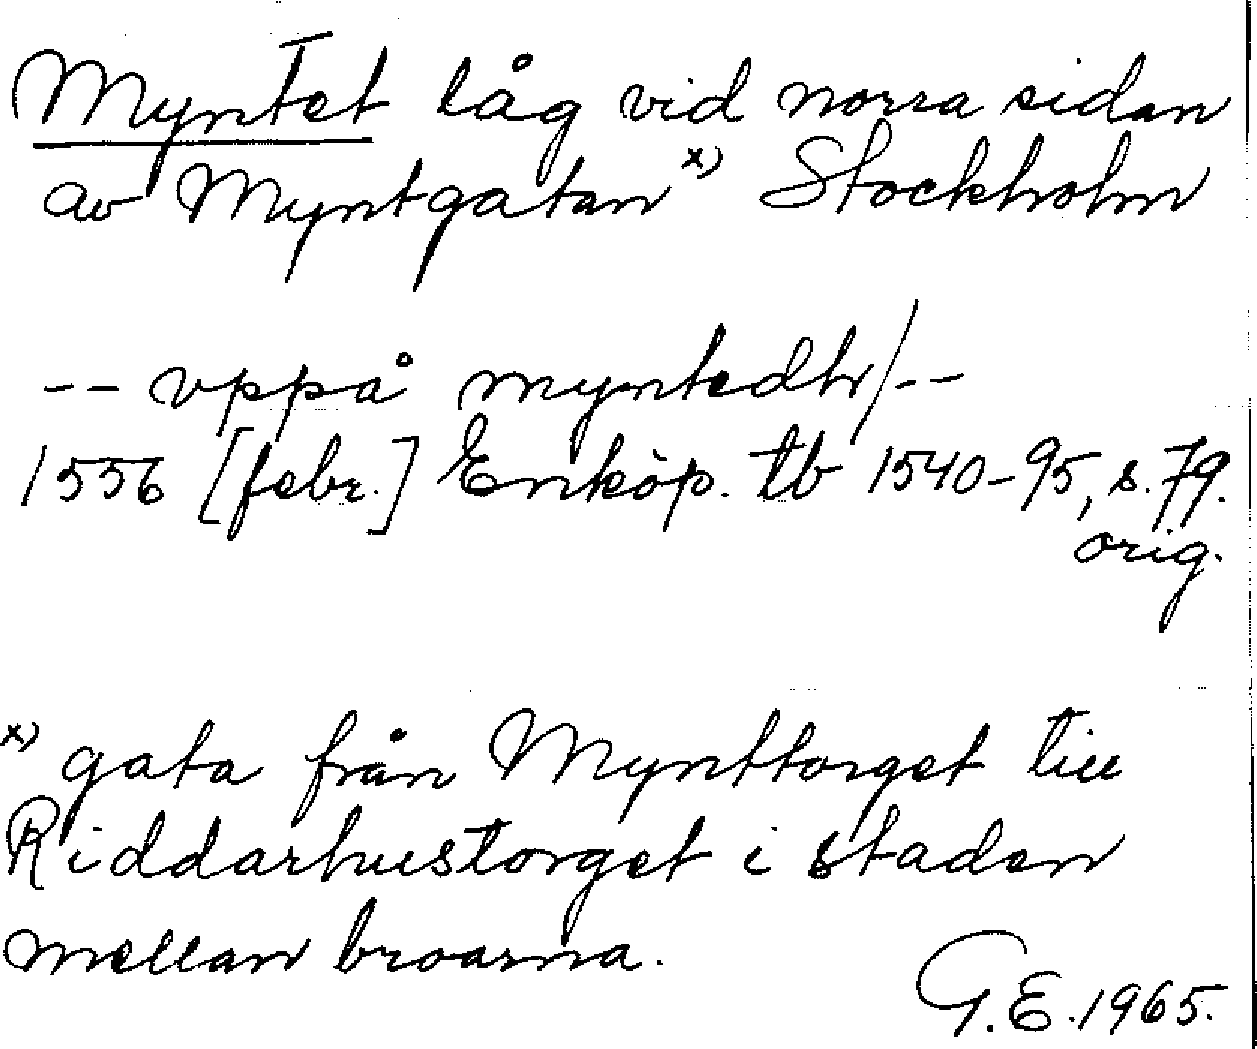 Myntet låg vid norra sidan
av Myntgatan x) Stockholm
-- vppå myntedh/--
1556 [febr.] Enköp. tb 1540-95, s. 79.
orig.
x) gata från Mynttorget till
Riddarhustorget i staden
mellan broarna.
G.E. 1965.